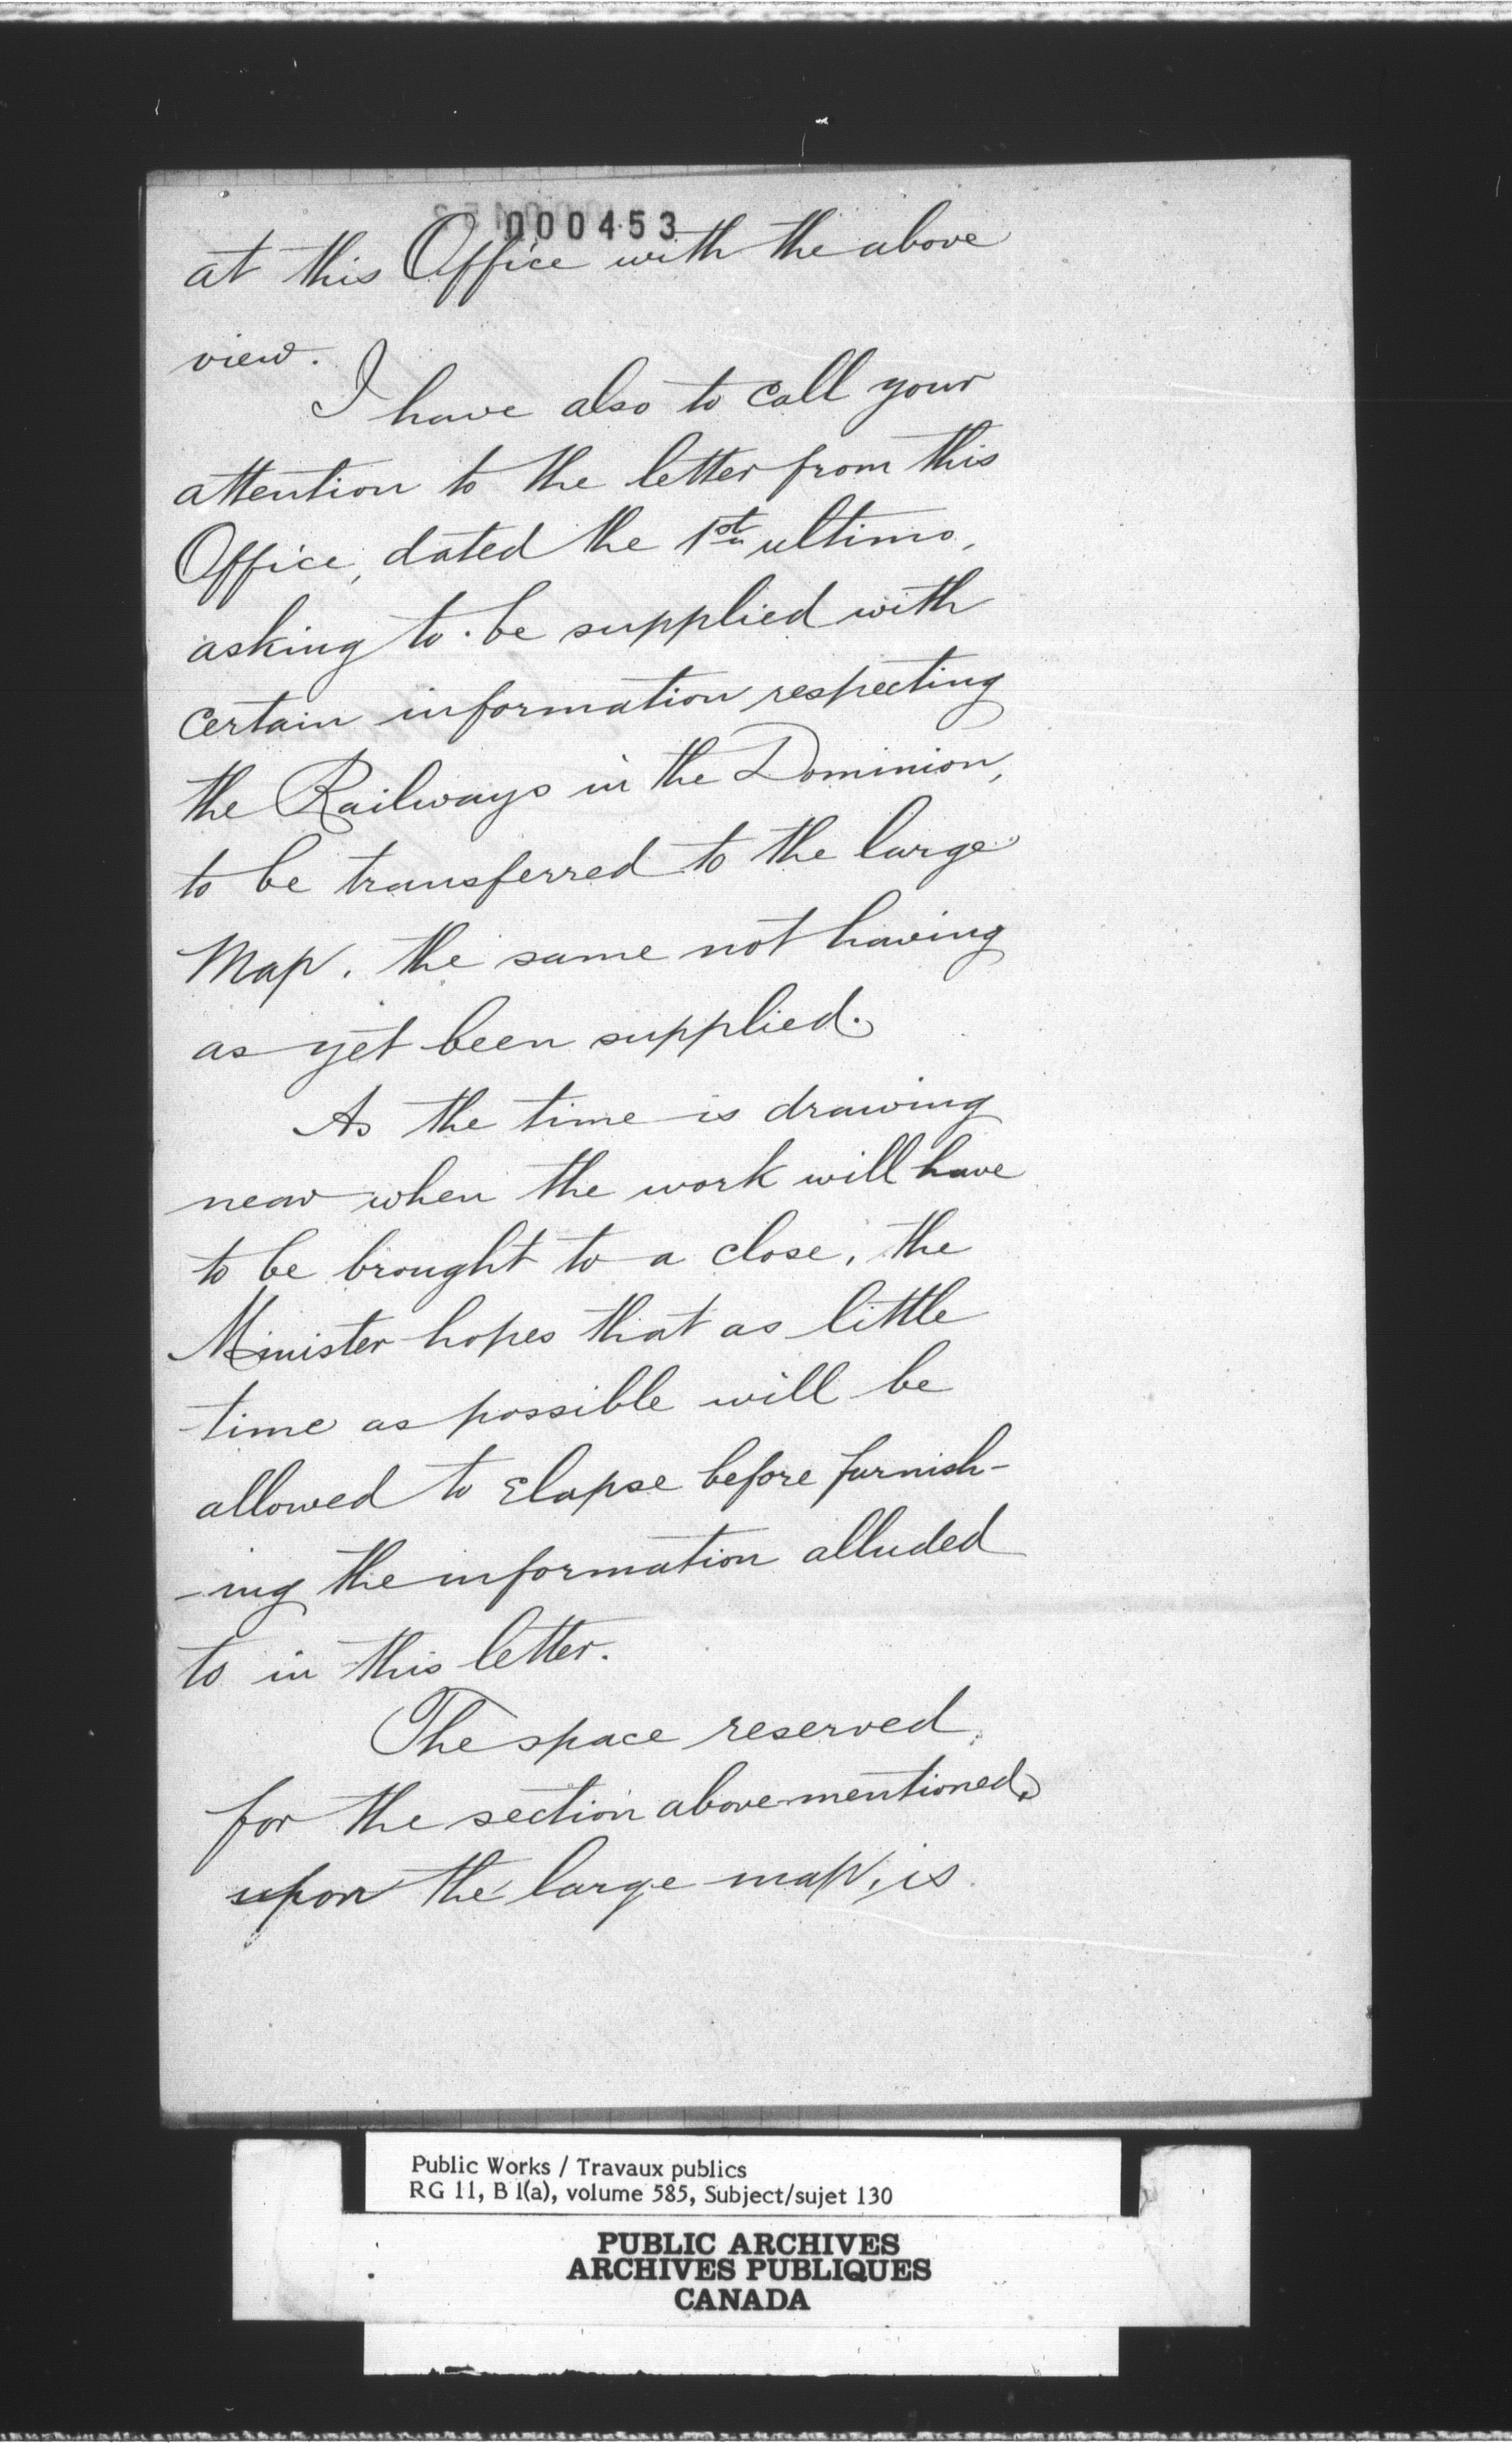 000453
at this Office with the above
view.
I have also to call your
attention to the letter from this
Office, dated the 1st ultimo,
asking to be supplied with
certain information respecting
the Railways in the Dominion,
to be transferred to the large
Map, the same not having
as yet been supplied.
As the time is drawing
near when the work will have
to be brought to a close, the
Minister hopes that as little
time as possible will be
allowed to Elapse before furnish-
-ing the information alluded
to in this letter.
The space reserved,
for the section above-mentioned,
upon the large map, is
Public Works / Travaux publics
RG 11, B 1(a), volume 585, Subject/sujet 130
PUBLIC ARCHIVES
ARCHIVES PUBLIQUES
CANADA